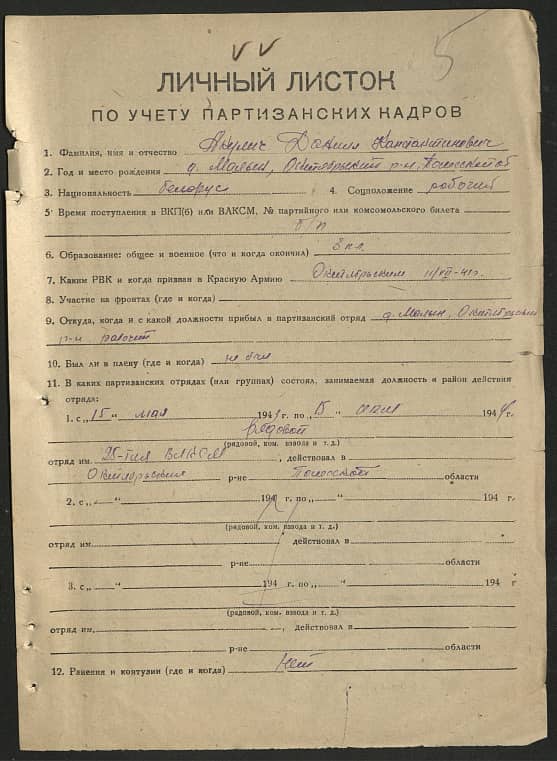 VV
5
ЛИЧНЫЙ ЛИСТОК
ПО УЧЕТУ ПАРТИЗАНСКИХ КАДРОВ
1. Фамилия, имя и отчество Данил Константинович
2. Год и место рождения д. Октябрьский р-н,
3. Национальность белорус 4. Соцположение рабочий
5 Время поступления в ВКП(б) или ВЛКСМ, № партийного или комсомольского билета
б/п
6. Образование: общее и военное (что и когда окончил) 3 кл.
7. Каким РВК и когда призван в Красную Армию Октябрьским 11/VII-41г.
8. Участие на фронтах (где и когда)
9. Откуда, когда и с какой должности прибыл в партизанский отряд д. Малын, Октябрьский
р-н рабочий
10. Был ли в плену (где и когда) не был
11. В каких партизанских отрядах (или группах) состоял, занимаемая должность и район действия
отряда:
1. с „15“ мая 194 г. по „15“ 1944 г.
рядовой
(рядовой, ком. взвода и т. д.)
отряд им. 25-тия ВЛКСМ, действовал в
Октябрьский р-не Полесской области
2. с „ “ 194 г. по „ “ 194 г.
(рядовой, ком. взвода и т. д.)
отряд им. действовал в
р-не области
3. с „ “ 194 г. по „ “ 194 г.
(рядовой, ком. взвода и т. д.)
отряд им. , действовал в
р-не области
12. Ранения и контузии (где и когда) Нет